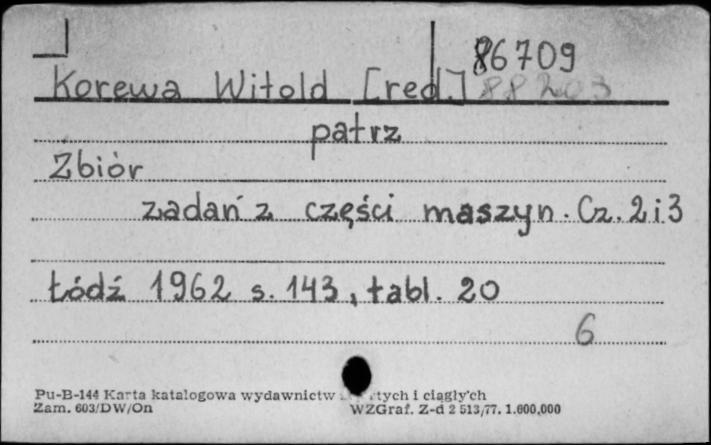 86709
Korewa Witold [red.] 88203
patrz
Zbiór
zadań z części maszyn. Cz. 2 i 3
Łódź 1962 s. 143, tabl. 20
6
Pu-B-144 Karta katalogowa wydawnictw i ciągłych
Zam. 603/DW/On WZGraf. Z-d 2 513/77. 1.600,000